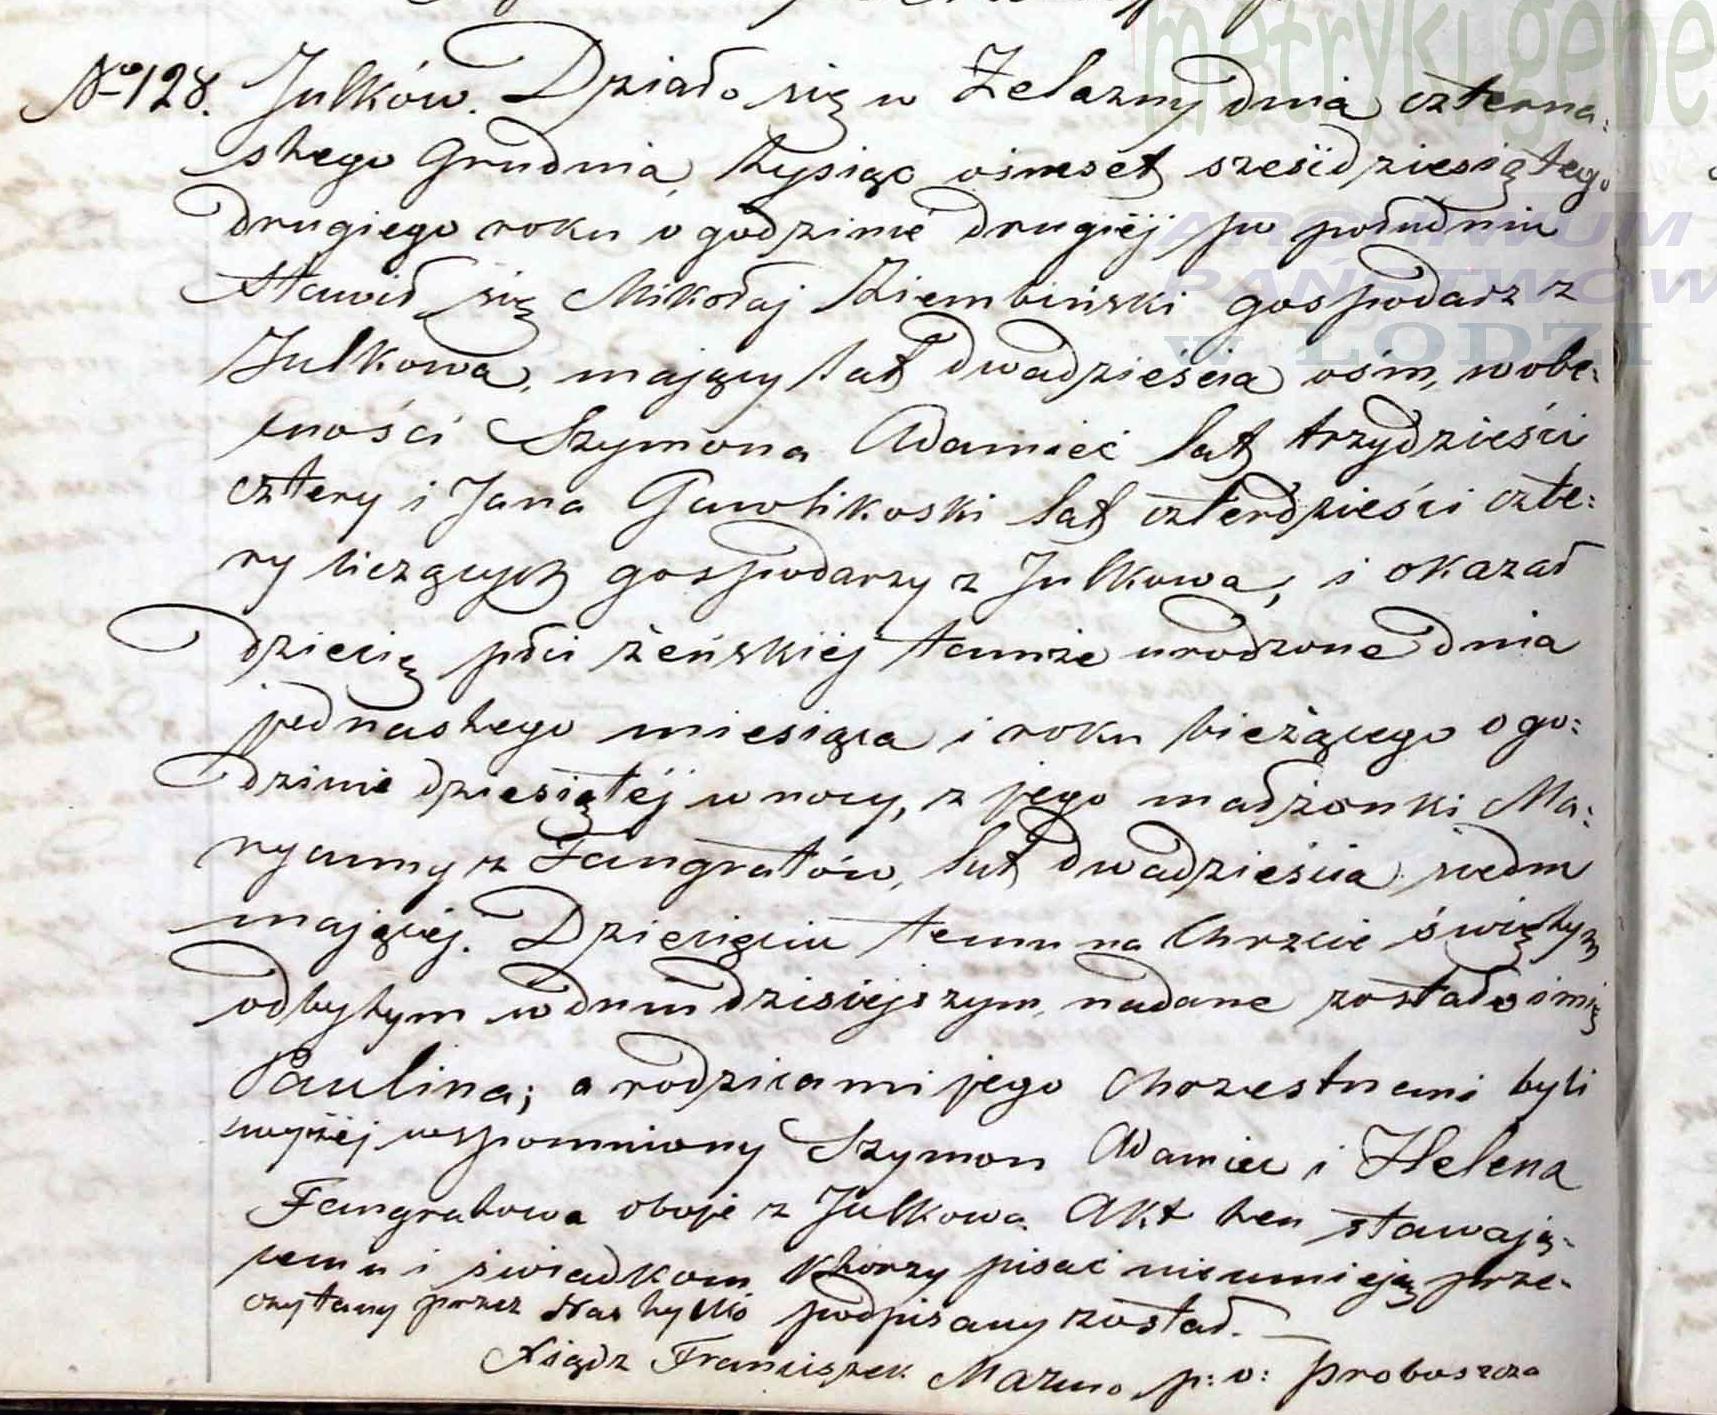 metryki.gene
ARCHIWUM
PAŃSTWOW
W ŁODZI
No 128. Julków. Działo się w Żelazny dnia czterna:
stego Grudnia, tysiąc ośmset sześćdziesiątego
drugiego roku o godzinie drugiéj po południu
stawił się Mikołaj Ziembiński gospodarz z
Julkowa, mający lat dwadzieścia ośm, w obe:
cności Szymona Adamiec lat trzydzieści
cztery i Jana Gawlikoski lat czterdzieści czte:
ry liczących gospodarzy z Julkowa, i okazał
dziecię płci żeńskiéj tamże urodzone dnia
jednastego miesiąca i roku bieżącego o go:
dzinie dziesiątéj w nocy, z jego małżonki Ma:
ryanny z Fangratów, lat dwadzieścia siedm
mającéj. Dziecięciu temu na Chrzcie świętym
odbytym w dniu dzisiejszym, nadane zostało imię
Paulina; a rodzicami jego Chrzestnemi byli
wyżéj wspomniony Szymon Adamiec i Helena
Fangratowa oboje z Julkowa. Akt ten stawają-
cemu i świadkom którzy pisać nieumieją prze-
czytany przez Nas tylko podpisany został.
Xiądz Franciszek p: o: Proboszcza